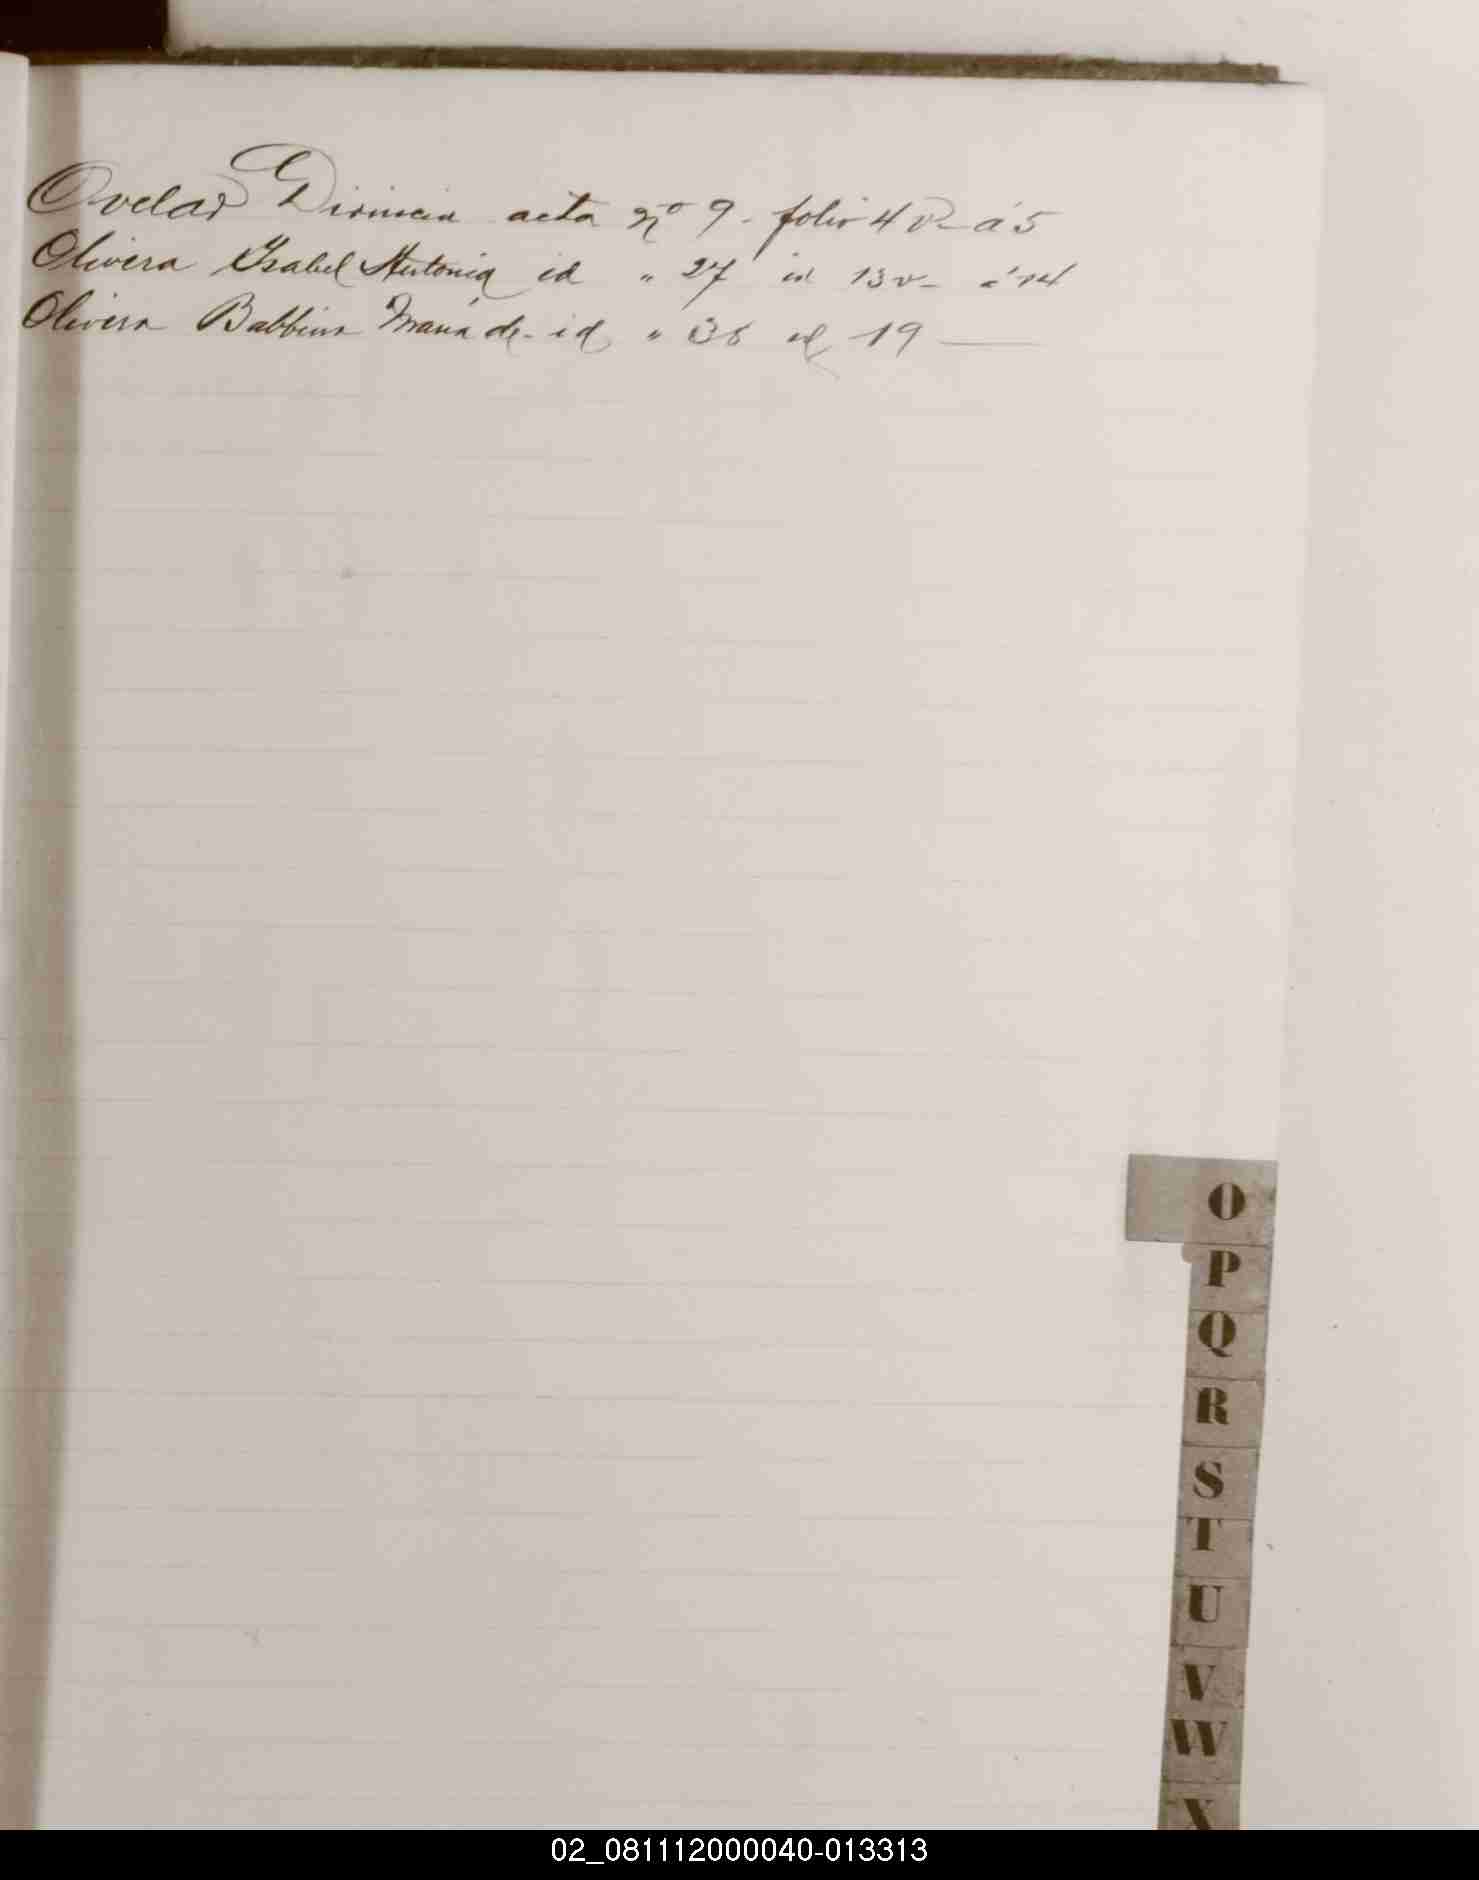 Ovelar acta nº 9 - folio 4 v- á 5
Olivera Ysabel Antonia id " 27 id 13 v- á 14
Olivera Balbina María de - id " 36 id 19
O
P
Q
R
S
T
U
V
W
X
02_081112000040-013313